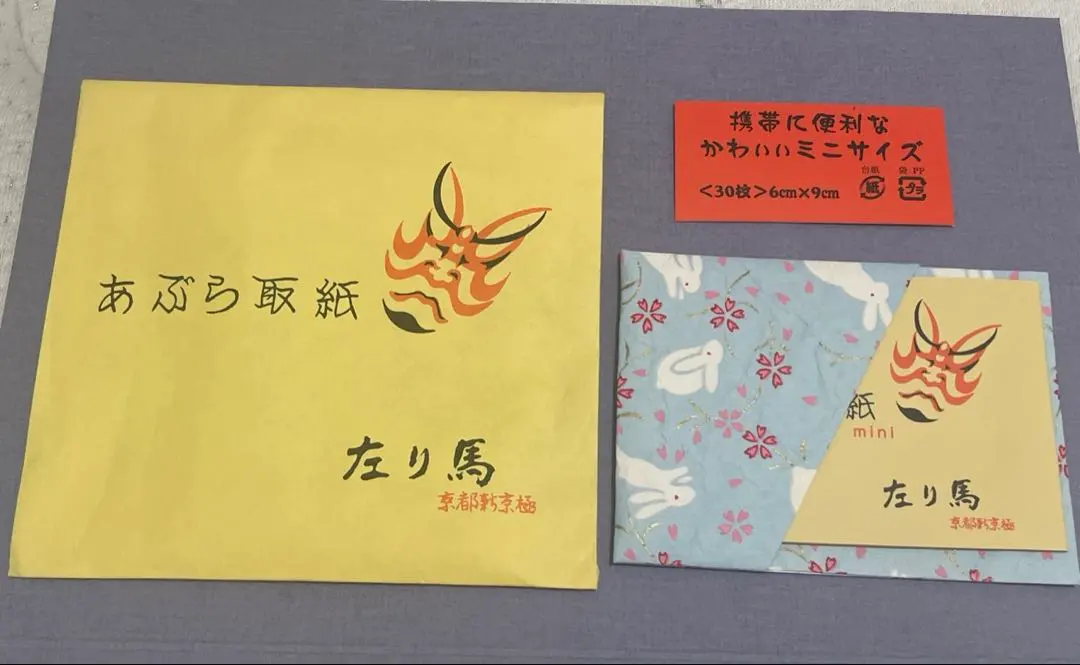 あぶら取紙
左り馬
京都新京極
携帯に便利な
かわいいミニサイズ
台紙 袋 PP
<30枚>6cm×9cm 紙 プラ
紙
mini
左り馬
京都新京極